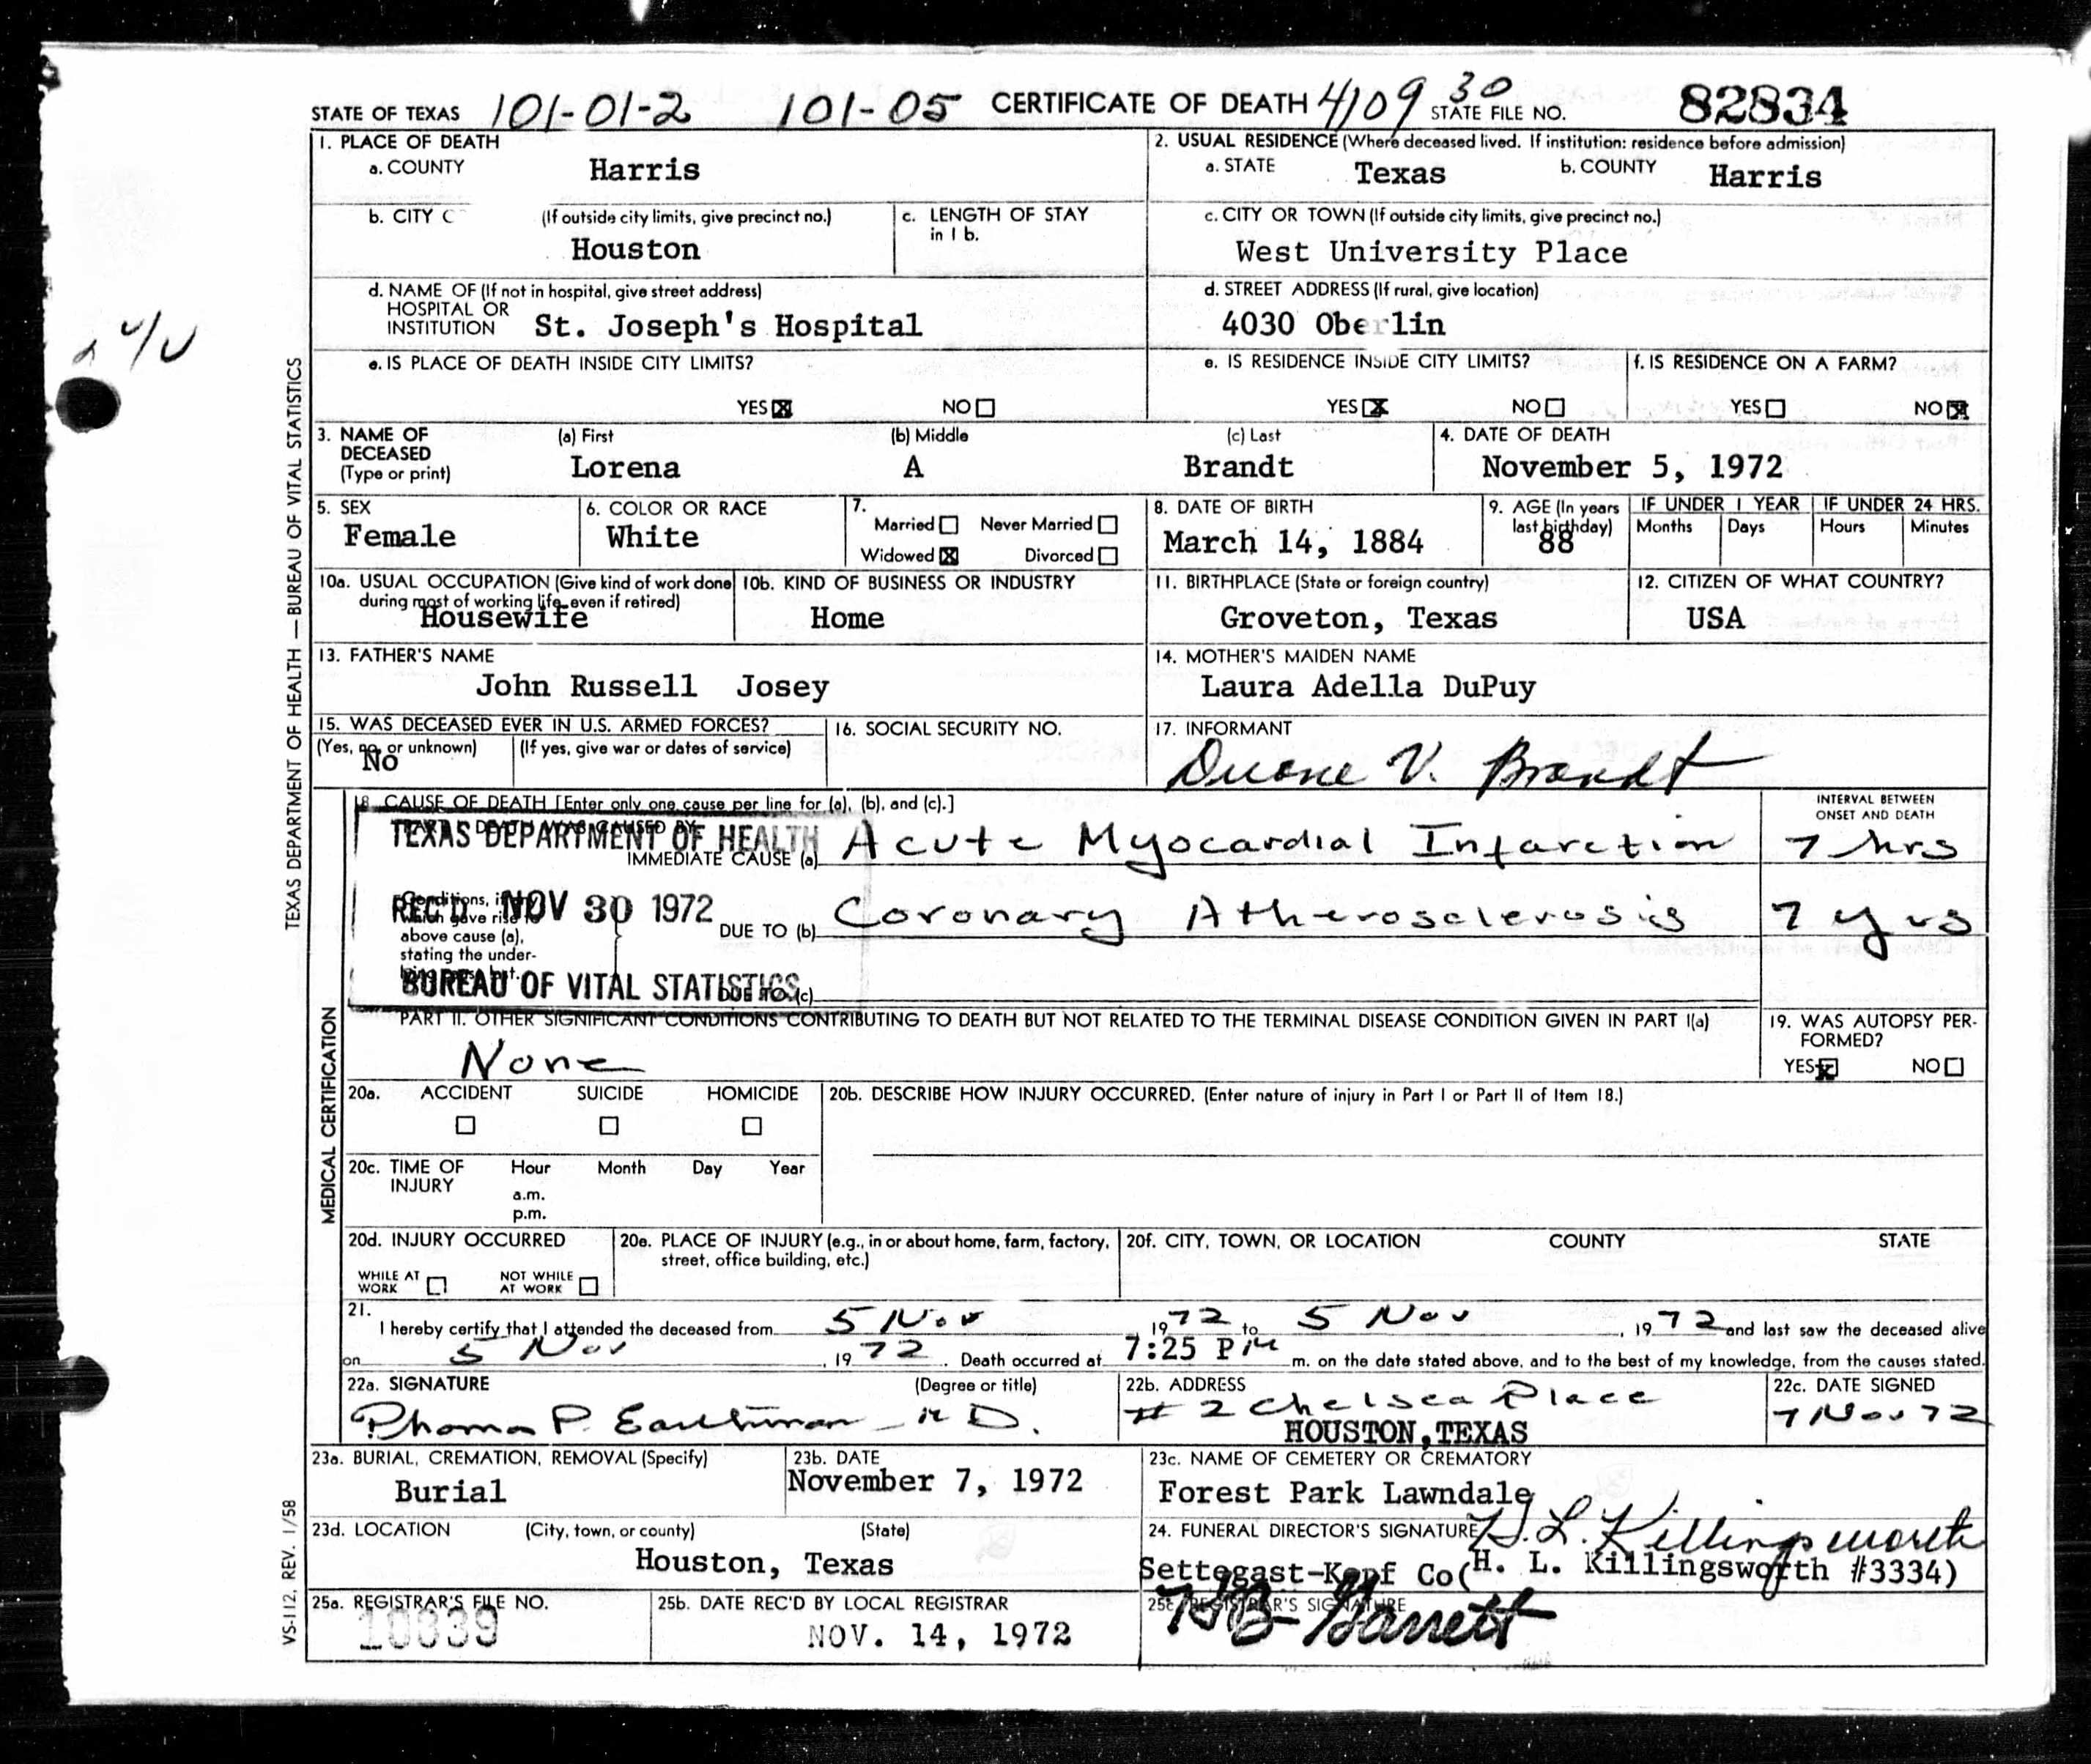 STATE OF TEXAS 101-01-2 101-05 CERTIFICATE OF DEATH 4109 30 STATE FILE NO. 82834
1. PLACE OF DEATH
a. COUNTY Harris
2. USUAL RESIDENCE (Where deceased lived. If institution: residence before admission)
a. STATE Texas b. COUNTY Harris
b. CITY (If outside city limits, give precinct no.)
Houston
c. LENGTH OF STAY
in 1 b.
c. CITY OR TOWN (If outside city limits, give precinct no.)
West University Place
d. NAME OF (If not in hospital, give street address)
HOSPITAL OR
INSTITUTION St. Joseph's Hospital
d. STREET ADDRESS (If rural, give location)
4030 Oberlin
e. IS PLACE OF DEATH INSIDE CITY LIMITS?
YES NO
e. IS RESIDENCE INSIDE CITY LIMITS?
YES NO
f. IS RESIDENCE ON A FARM?
YES NO
3. NAME OF
DECEASED
(Type or print)
(a) First
Lorena
(b) Middle
A
(c) Last
Brandt
4. DATE OF DEATH
November 5, 1972
5. SEX
Female
6. COLOR OR RACE
White
7.
Married Never Married
Widowed Divorced
8. DATE OF BIRTH
March 14, 1884
9. AGE (In years
last birthday)
88
IF UNDER 1 YEAR
Months Days
IF UNDER 24 HRS.
Hours Minutes
10a. USUAL OCCUPATION (Give kind of work done
during most of working life, even if retired)
Housewife
10b. KIND OF BUSINESS OR INDUSTRY
Home
11. BIRTHPLACE (State or foreign country)
Groveton, Texas
12. CITIZEN OF WHAT COUNTRY?
USA
13. FATHER'S NAME
John Russell Josey
14. MOTHER'S MAIDEN NAME
Laura Adella DuPuy
15. WAS DECEASED EVER IN U.S. ARMED FORCES?
(Yes, no, or unknown) (If yes, give war or dates of service)
No
16. SOCIAL SECURITY NO.
17. INFORMANT
Duane V. Brandt
18. CAUSE OF DEATH [Enter only one cause per line for (a), (b), and (c).]
INTERVAL BETWEEN
ONSET AND DEATH
TEXAS DEPARTMENT OF HEALTH
IMMEDIATE CAUSE (a) Acute Myocardial Infarction 7 hrs
REC'D NOV 30 1972
Conditions, if any,
which gave rise to
above cause (a),
stating the under-
lying cause last.
DUE TO (b) Coronary Atherosclerosis 7 yrs
BUREAU OF VITAL STATISTICS
DUE TO (c)
PART II. OTHER SIGNIFICANT CONDITIONS CONTRIBUTING TO DEATH BUT NOT RELATED TO THE TERMINAL DISEASE CONDITION GIVEN IN PART I(a)
None
19. WAS AUTOPSY PER-
FORMED?
YES NO
20a. ACCIDENT SUICIDE HOMICIDE
20b. DESCRIBE HOW INJURY OCCURRED. (Enter nature of injury in Part I or Part II of Item 18.)
20c. TIME OF
INJURY
Hour Month Day Year
a.m.
p.m.
20d. INJURY OCCURRED
WHILE AT
WORK
NOT WHILE
AT WORK
20e. PLACE OF INJURY (e.g., in or about home, farm, factory,
street, office building, etc.)
20f. CITY, TOWN, OR LOCATION COUNTY STATE
21.
I hereby certify that I attended the deceased from 5 Nov 1972 to 5 Nov, 1972 and last saw the deceased alive
on 5 Nov, 1972. Death occurred at 7:25 PM m. on the date stated above, and to the best of my knowledge, from the causes stated.
22a. SIGNATURE (Degree or title)
P. M D.
22b. ADDRESS
# 2 Chelsea Place
HOUSTON, TEXAS
22c. DATE SIGNED
7 Nov 72
23a. BURIAL, CREMATION, REMOVAL (Specify)
Burial
23b. DATE
November 7, 1972
23c. NAME OF CEMETERY OR CREMATORY
Forest Park Lawndale
23d. LOCATION (City, town, or county) (State)
Houston, Texas
24. FUNERAL DIRECTOR'S SIGNATURE H. L. Killingsworth
Settegast-Kopf Co (H. L. Killingsworth #3334)
25a. REGISTRAR'S FILE NO.
10039
25b. DATE REC'D BY LOCAL REGISTRAR
NOV. 14, 1972
25c. REGISTRAR'S SIGNATURE
Garrett
TEXAS DEPARTMENT OF HEALTH — BUREAU OF VITAL STATISTICS
MEDICAL CERTIFICATION
VS-112, REV. 1/58